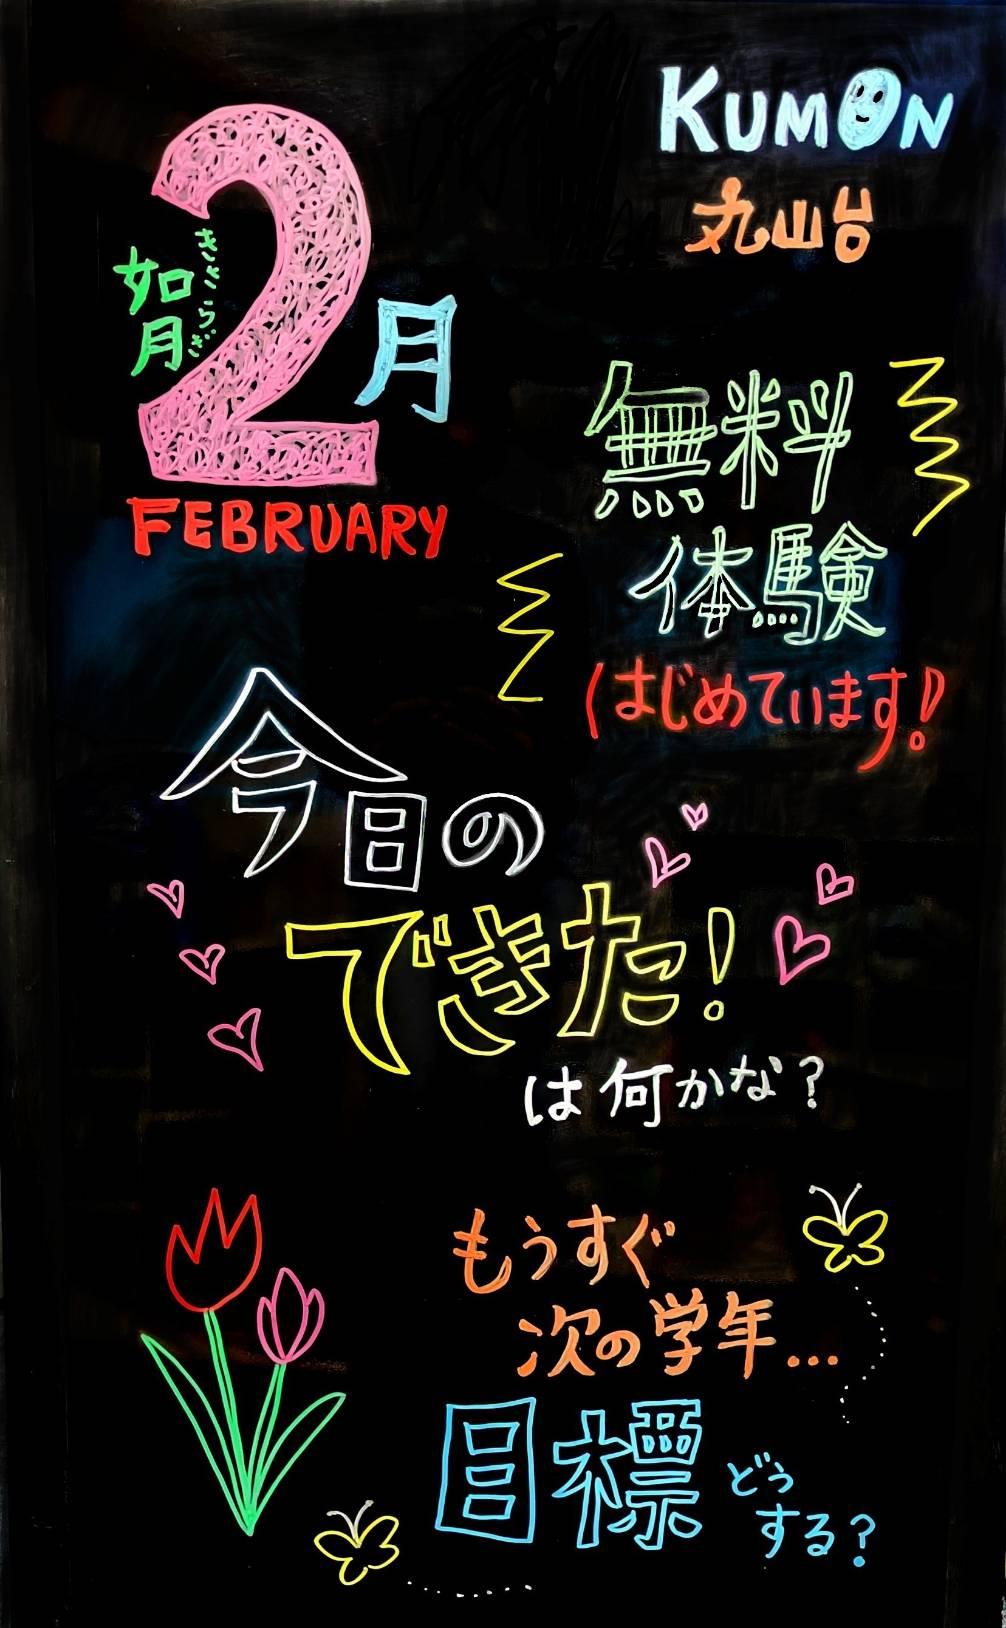 KUMON
丸山台
2月
如月
きさらぎ
FEBRUARY
無料
体験
はじめています!
今日の
できた!
は何かな?
もうすぐ
次の学年...
目標どう
する?